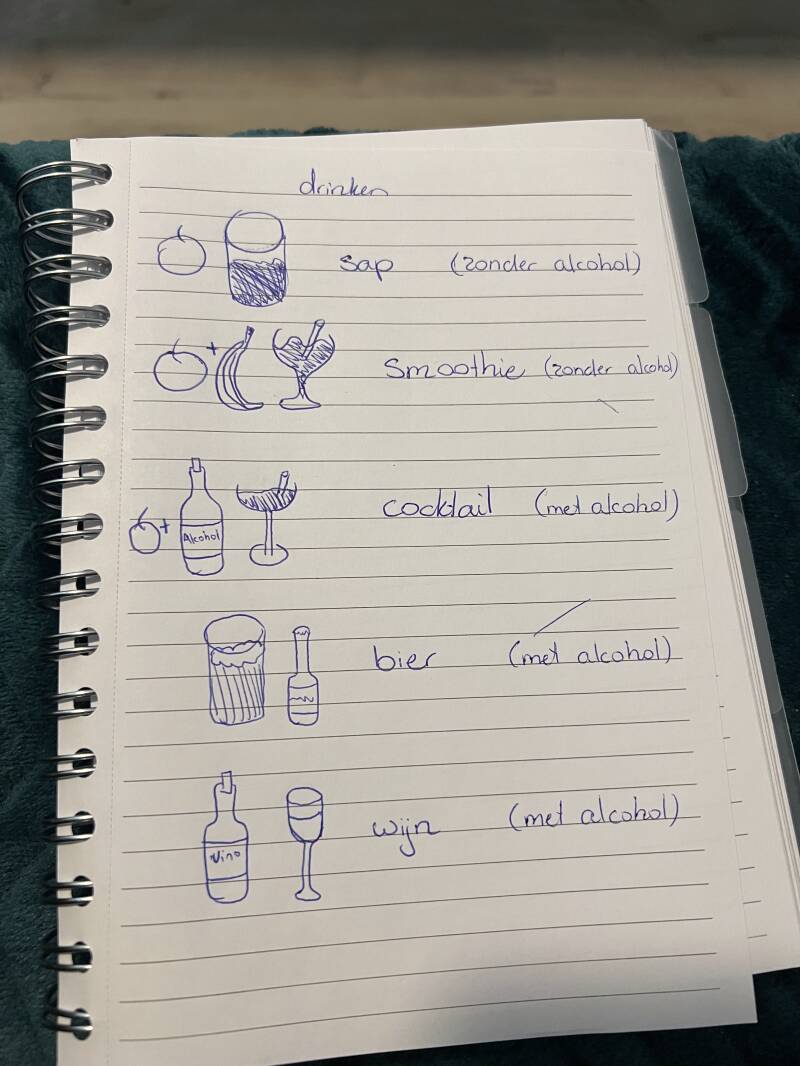 drinken
sap (zonder alcohol)
smoothie (zonder alcohol)
+
cocktail (met alcohol)
+ Alcohol
bier (met alcohol)
wijn (met alcohol)
Vino